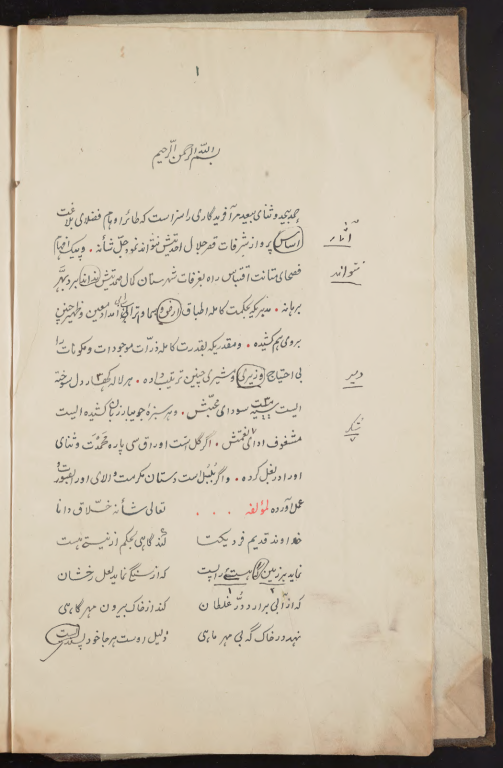 ۱
بسم الله الرحمن الرحیم
حمد بیحد و ثنای بیعد مر آفریدگاری را سزاست که طائر اوهام فضلای بلاغت
اساس پرواز شرفات قصر جلال اقدسش نتواند نمود جل شأنه . و پیک افهام
آثار
فصحای متانت اقتباس راه بغرفات شهرستان کمال صمدیتش
نتواند
برهانه . مدبریکه بحکمت کامله اطباق سماوات را بی امداد معین و ظهیر چنین
بروی هم کشیده . و مقدریکه بقدرت کامله ذرات موجودات و مکونات را
بی احتیاج وزیری و مشیری چنین ترتیب داده . هر لاله کهسار دل سوخته
دبیر
ایست سودای محبتش . و هر سبزه جویبار زبان کشیده ایست
مشغوف ادای نعمتش . اگر گل است اوراق سی پاره حمدت و ثنای
او را در بغل کرده . و اگر بلبل است دستان مکرمت والای او را
عمل آورده لمؤلفه . . . تعالی شأنه خلاق دانا
خداوند قدیم فرد یکتا کند گاهی بحکم از نیستی هست
نماید بر زمین که از سنگ نماید لعل رخشان
که از آبی برارد در غلطان کند از خاک بیرون مهر گاهی
نهد در خاک گه بی مهر ماهی دلیل اوست هر جا خود